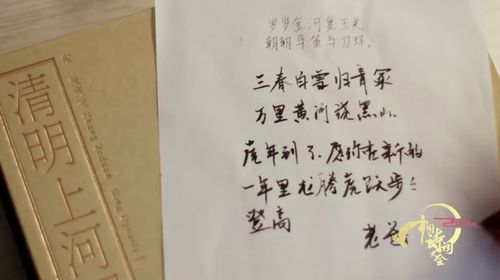 岁岁金河复玉关
朝朝马策与刀环。
三春白雪归青冢
万里黄河绕黑山
虎年到了.愿你在新的
一年里龙腾虎跃步步
登高
老爸
清明上河
Zhang Zeduan Song Dynasty
中国诗词大会